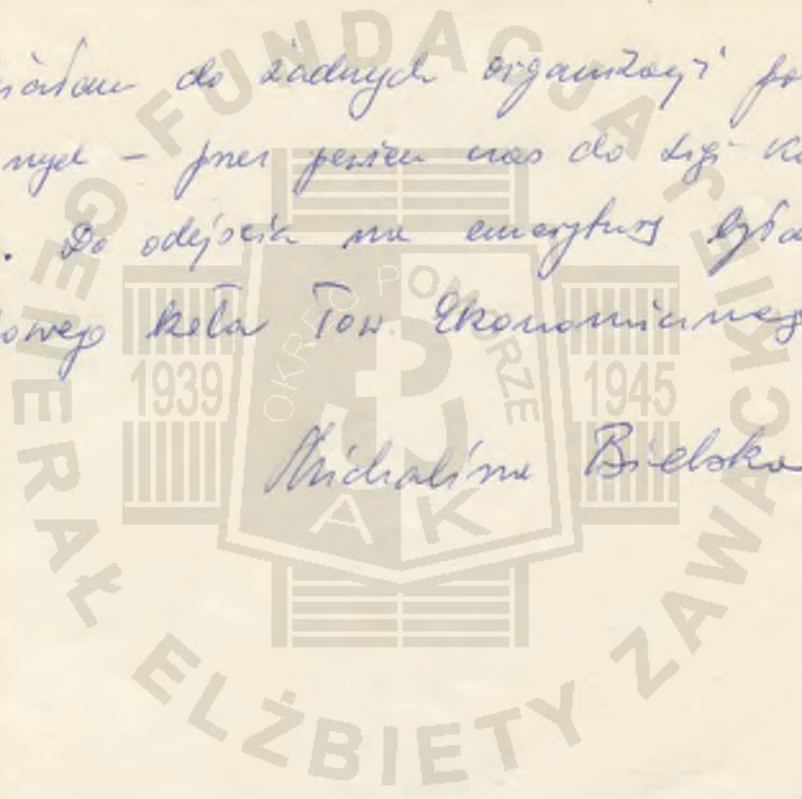 do żadnych organizacji
nych - przez pewien czas do Ligi
. Do odejścia na emeryturę
owego koła Tow. Ekonomicznego
Michalina Bielska
FUNDACJA JEJ
GENERAŁ ELŻBIETY ZAWACKIEJ
OKRĘG POMORZE
1939
1945
AK